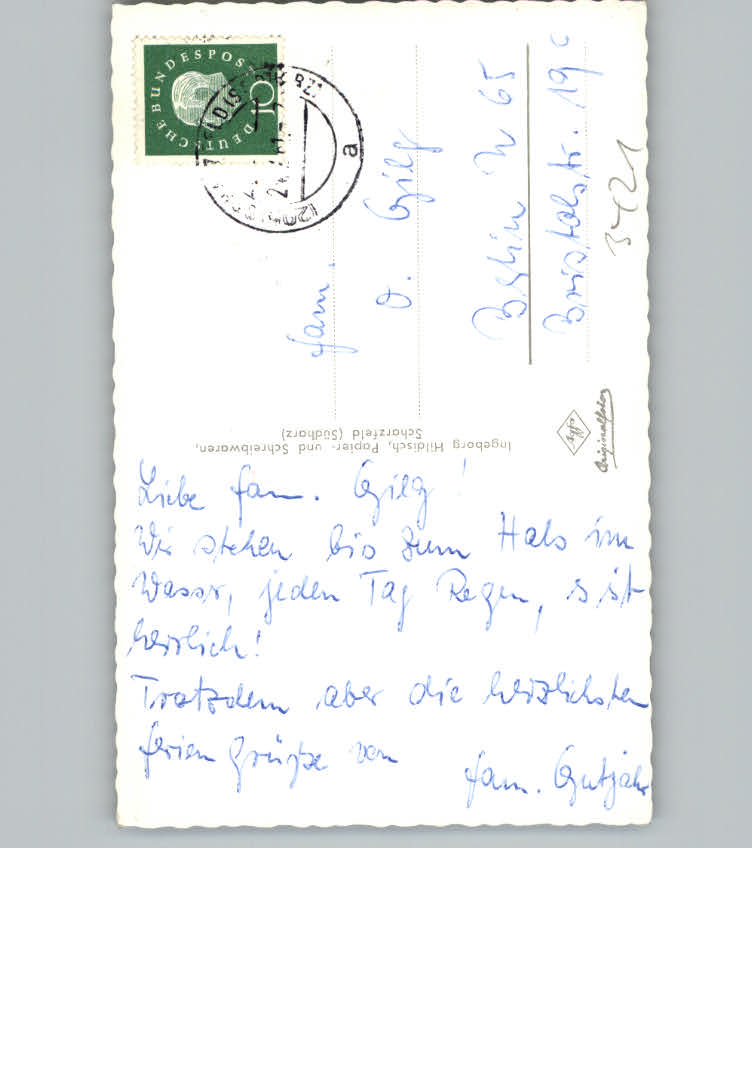 Liebe Fam. Gilg!
Wir stehen bis zum Hals im
Wasser, jeden Tag Regen, es ist
herrlich!
Trotzdem aber die herzlichsten
Ferien Grüße von
Fam. Gutjahr
Fam.
O. Gilg
Berlin N 65
Bristolstr. 19c
3421
Ingeborg Hildisch, Papier- und Schreibwaren,
Scharzfeld (Südharz)
Agfa
Originalfoto
DEUTSCHE BUNDESPOST
10
a